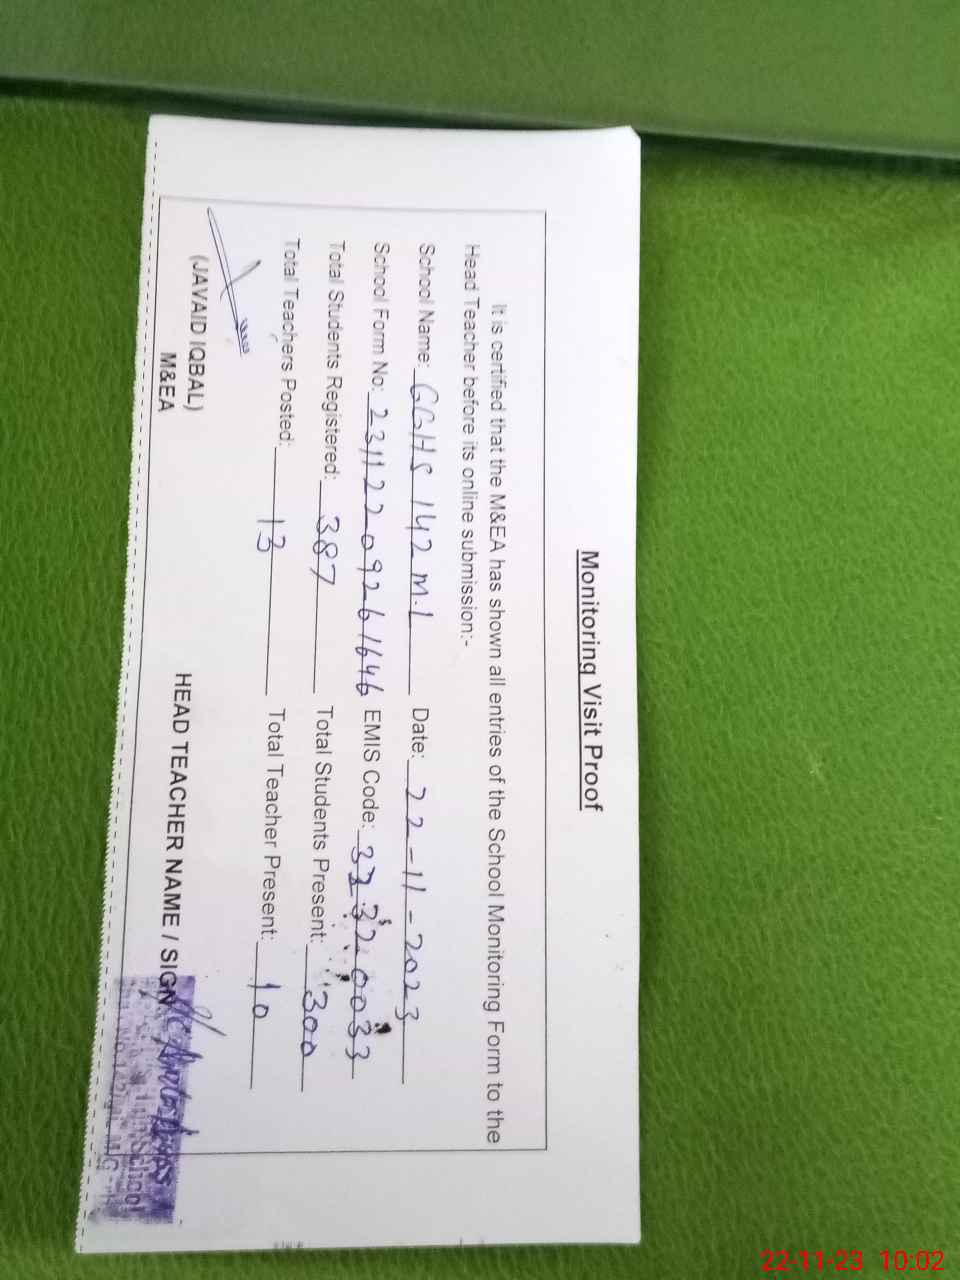 Monitoring Visit Proof
It is certified that the M&EA has shown all entries of the School Monitoring Form to the
Head Teacher before its online submission:-
School Name: GGHS 142 M.L Date: 22-11-2023
School Form No: 231122092 61646 EMIS Code: 33320033
Total Students Registered: 387 Total Students Present: 300
Total Teachers Posted: 13 Total Teacher Present: 10
(JAVAID IQBAL)
M&EA
HEAD TEACHER NAME / SIGN
School
22-11-23 10:02